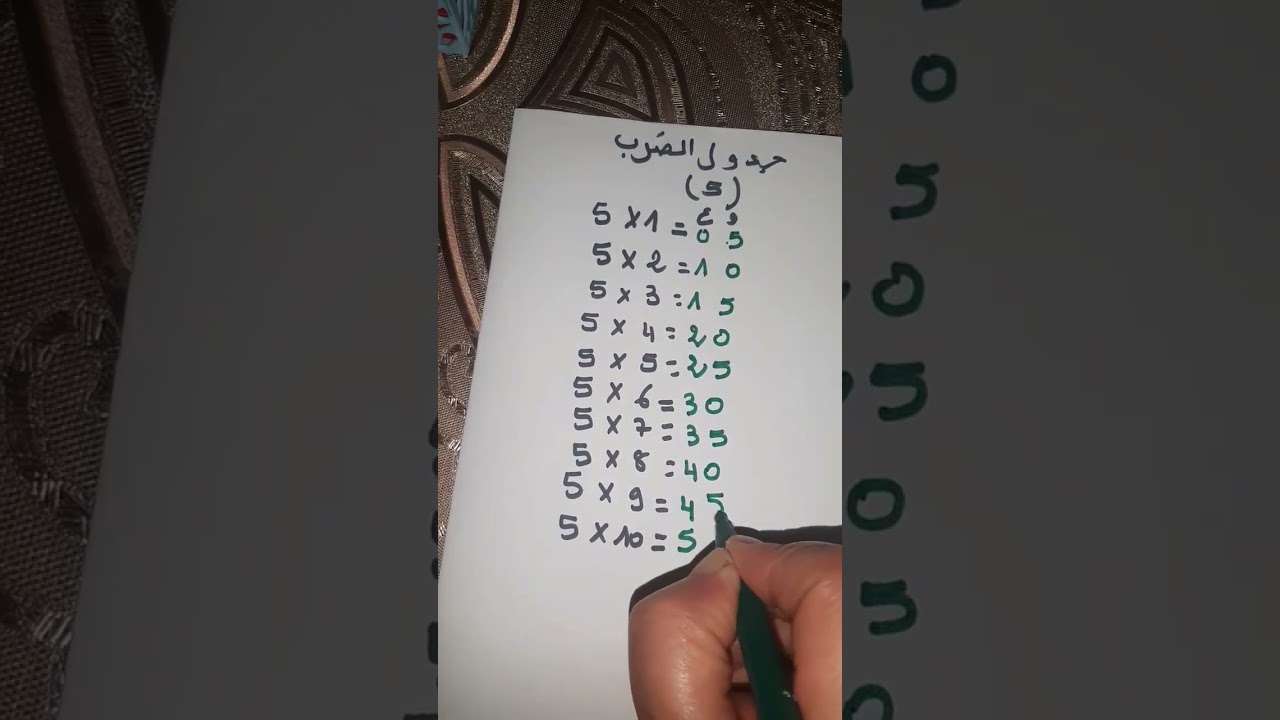 جدول الضرب
(5)
ع و
5 x 1 = 0 5
5 x 2 = 1 0
5 x 3 = 1 5
5 x 4 = 20
5 x 5 = 25
5 x 6 = 30
5 x 7 = 35
5 x 8 = 40
5 x 9 = 4 5
5 x 10 = 5